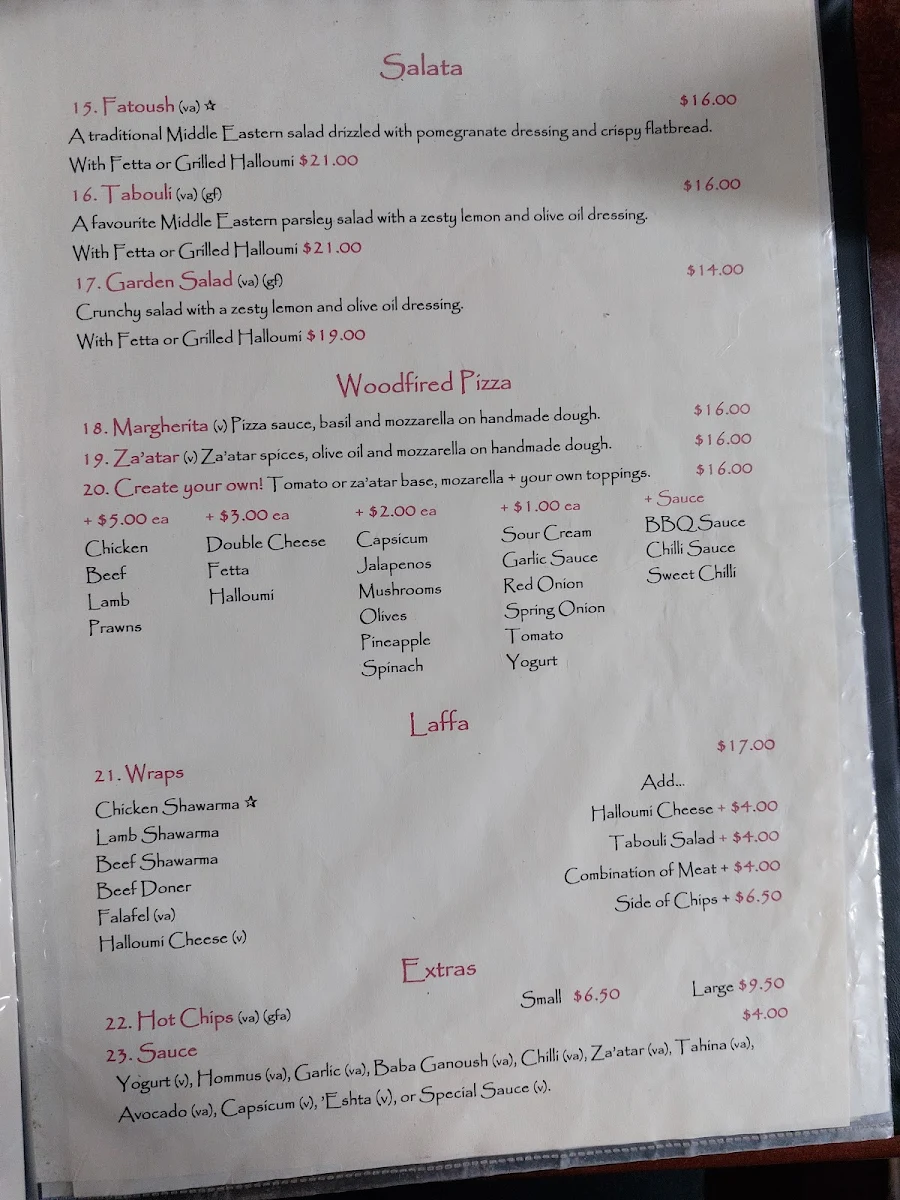 Salata
15. Fatoush (va) ☆ $16.00
A traditional Middle Eastern salad drizzled with pomegranate dressing and crispy flatbread.
With Fetta or Grilled Halloumi $21.00
16. Tabouli (va) (gf) $16.00
A favourite Middle Eastern parsley salad with a zesty lemon and olive oil dressing.
With Fetta or Grilled Halloumi $21.00
17. Garden Salad (va) (gf) $14.00
Crunchy salad with a zesty lemon and olive oil dressing.
With Fetta or Grilled Halloumi $19.00
Woodfired Pizza
18. Margherita (v) Pizza sauce, basil and mozzarella on handmade dough. $16.00
19. Za'atar (v) Za'atar spices, olive oil and mozzarella on handmade dough. $16.00
20. Create your own! Tomato or za'atar base, mozarella + your own toppings. $16.00
+ $5.00 ea
Chicken
Beef
Lamb
Prawns
+ $3.00 ea
Double Cheese
Fetta
Halloumi
+ $2.00 ea
Capsicum
Jalapenos
Mushrooms
Olives
Pineapple
Spinach
+ $1.00 ea
Sour Cream
Garlic Sauce
Red Onion
Spring Onion
Tomato
Yogurt
+ Sauce
BBQ Sauce
Chilli Sauce
Sweet Chilli
Laffa
21. Wraps $17.00
Chicken Shawarma ☆
Lamb Shawarma
Beef Shawarma
Beef Doner
Falafel (va)
Halloumi Cheese (v)
Add...
Halloumi Cheese + $4.00
Tabouli Salad + $4.00
Combination of Meat + $4.00
Side of Chips + $6.50
Extras
22. Hot Chips (va) (gfa) Small $6.50 Large $9.50
23. Sauce $4.00
Yogurt (v), Hommus (va), Garlic (va), Baba Ganoush (va), Chilli (va), Za'atar (va), Tahina (va),
Avocado (va), Capsicum (v), 'Eshta (v), or Special Sauce (v).